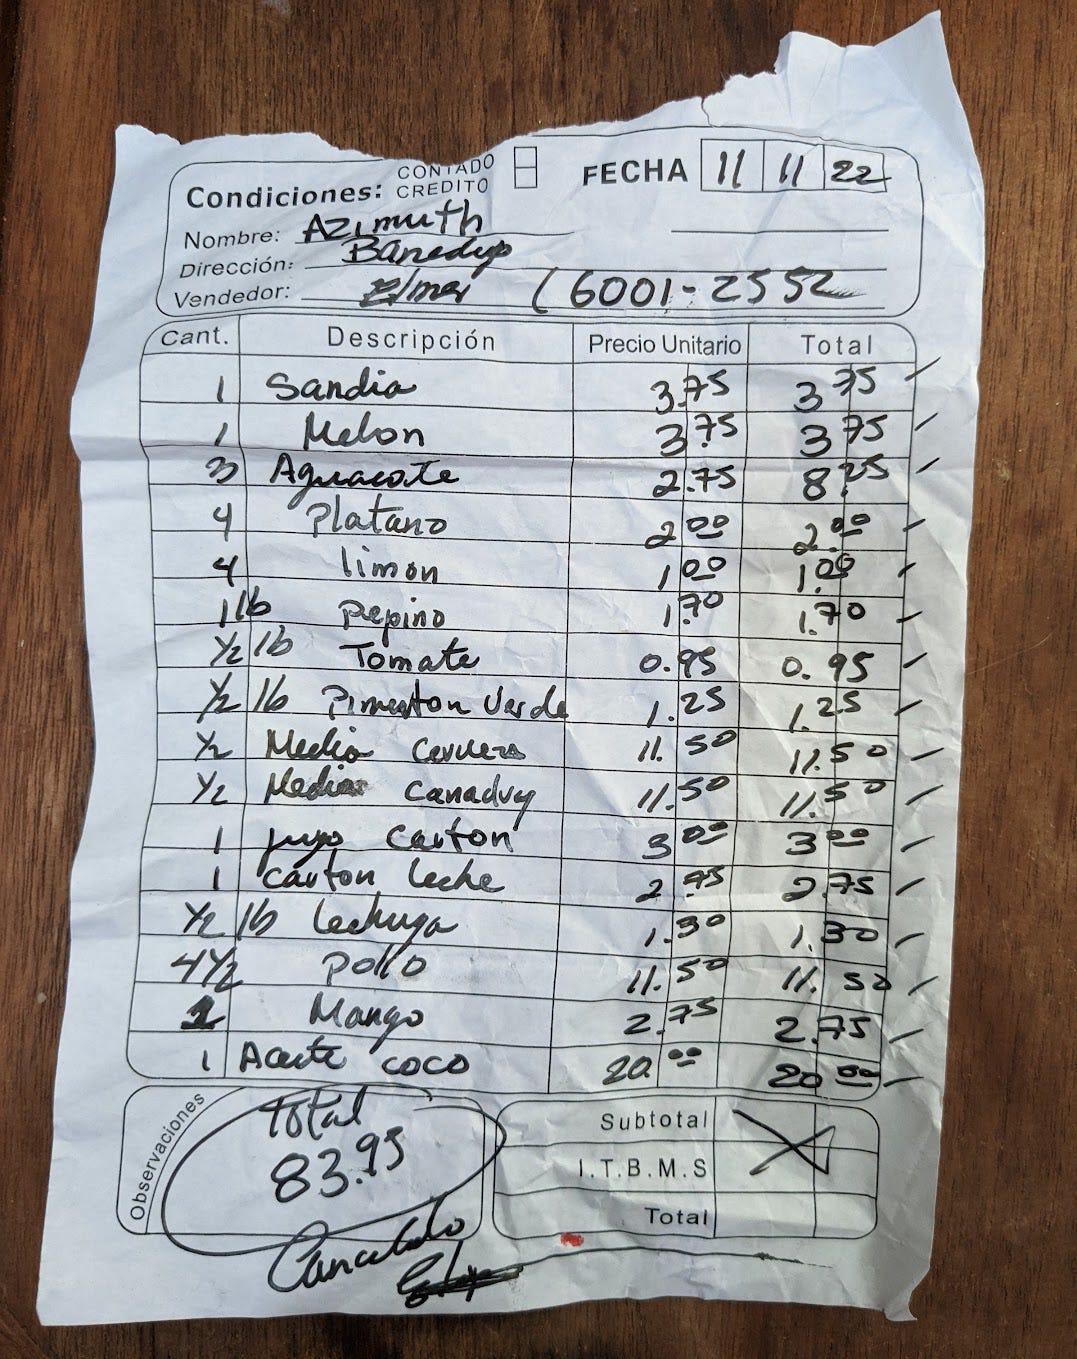 CONTADO
Condiciones: CREDITO FECHA 11 11 22
Nombre: Azimuth
Dirección:
Vendedor: (6001-2552
Cant. Descripción Precio Unitario Total
1 Sandia 3.75 3.75
1 Melon 3.75 3.75
3 Aguacate 2.75 8.25
4 Platano 2.00 2.00
4 limon 1.00 1.00
1 lb Pepino 1.70 1.70
1/2 lb Tomate 0.95 0.95
1/2 lb Pimenton Verde 1.25 1.25
1/2 Media 11.50 11.50
1/2 Media Canadry 11.50 11.50
1 jugo Carton 3.00 3.00
1 Carton Leche 2.75 2.75
1/2 lb Lechuga 1.30 1.30
4 1/2 Pollo 11.50 11.50
1 Mango 2.75 2.75
1 Aceite coco 20.00 20.00
Observaciones
Total
83.95
Cancelado
Subtotal
I.T.B.M.S
Total